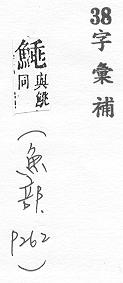 38字彙補
與
同
(魚部.
P262)